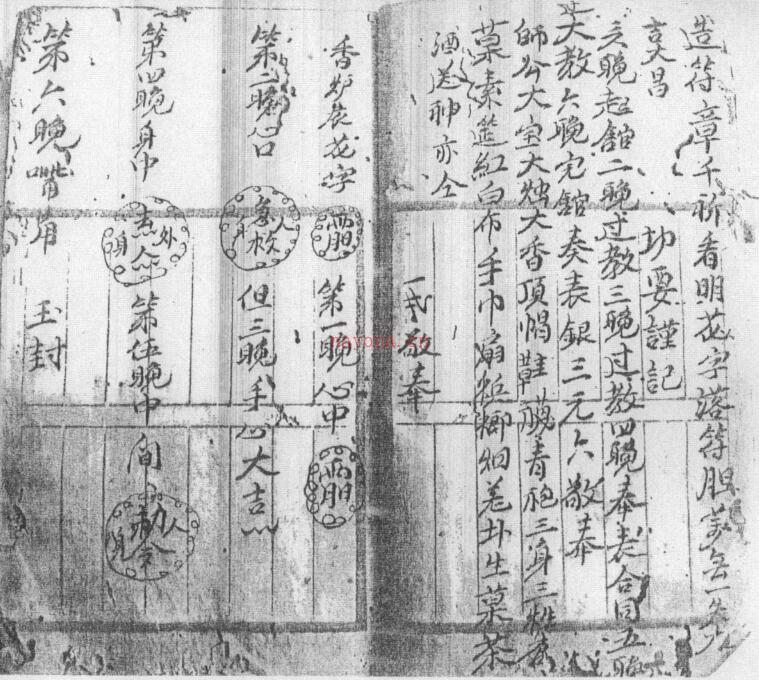 造符章千祈看明花字落符胆
真昌
切要謹記
六晚起館二晚过教三晚过教四晚奉表合同五晚
大教六晚完館奏表銀三元六敬奉
師公大宝大烛大香頂帽鞋襪青袍三身三牲
菓素筵紅白布手巾扇
生菓茶
酒送神亦仝
一式敬奉
香炉花字
兩胆
第一晚心中
兩胆
第二晚口
但三晚手心大吉
第四晚身中
第伍晚中间
第六晚嘴角
玉封